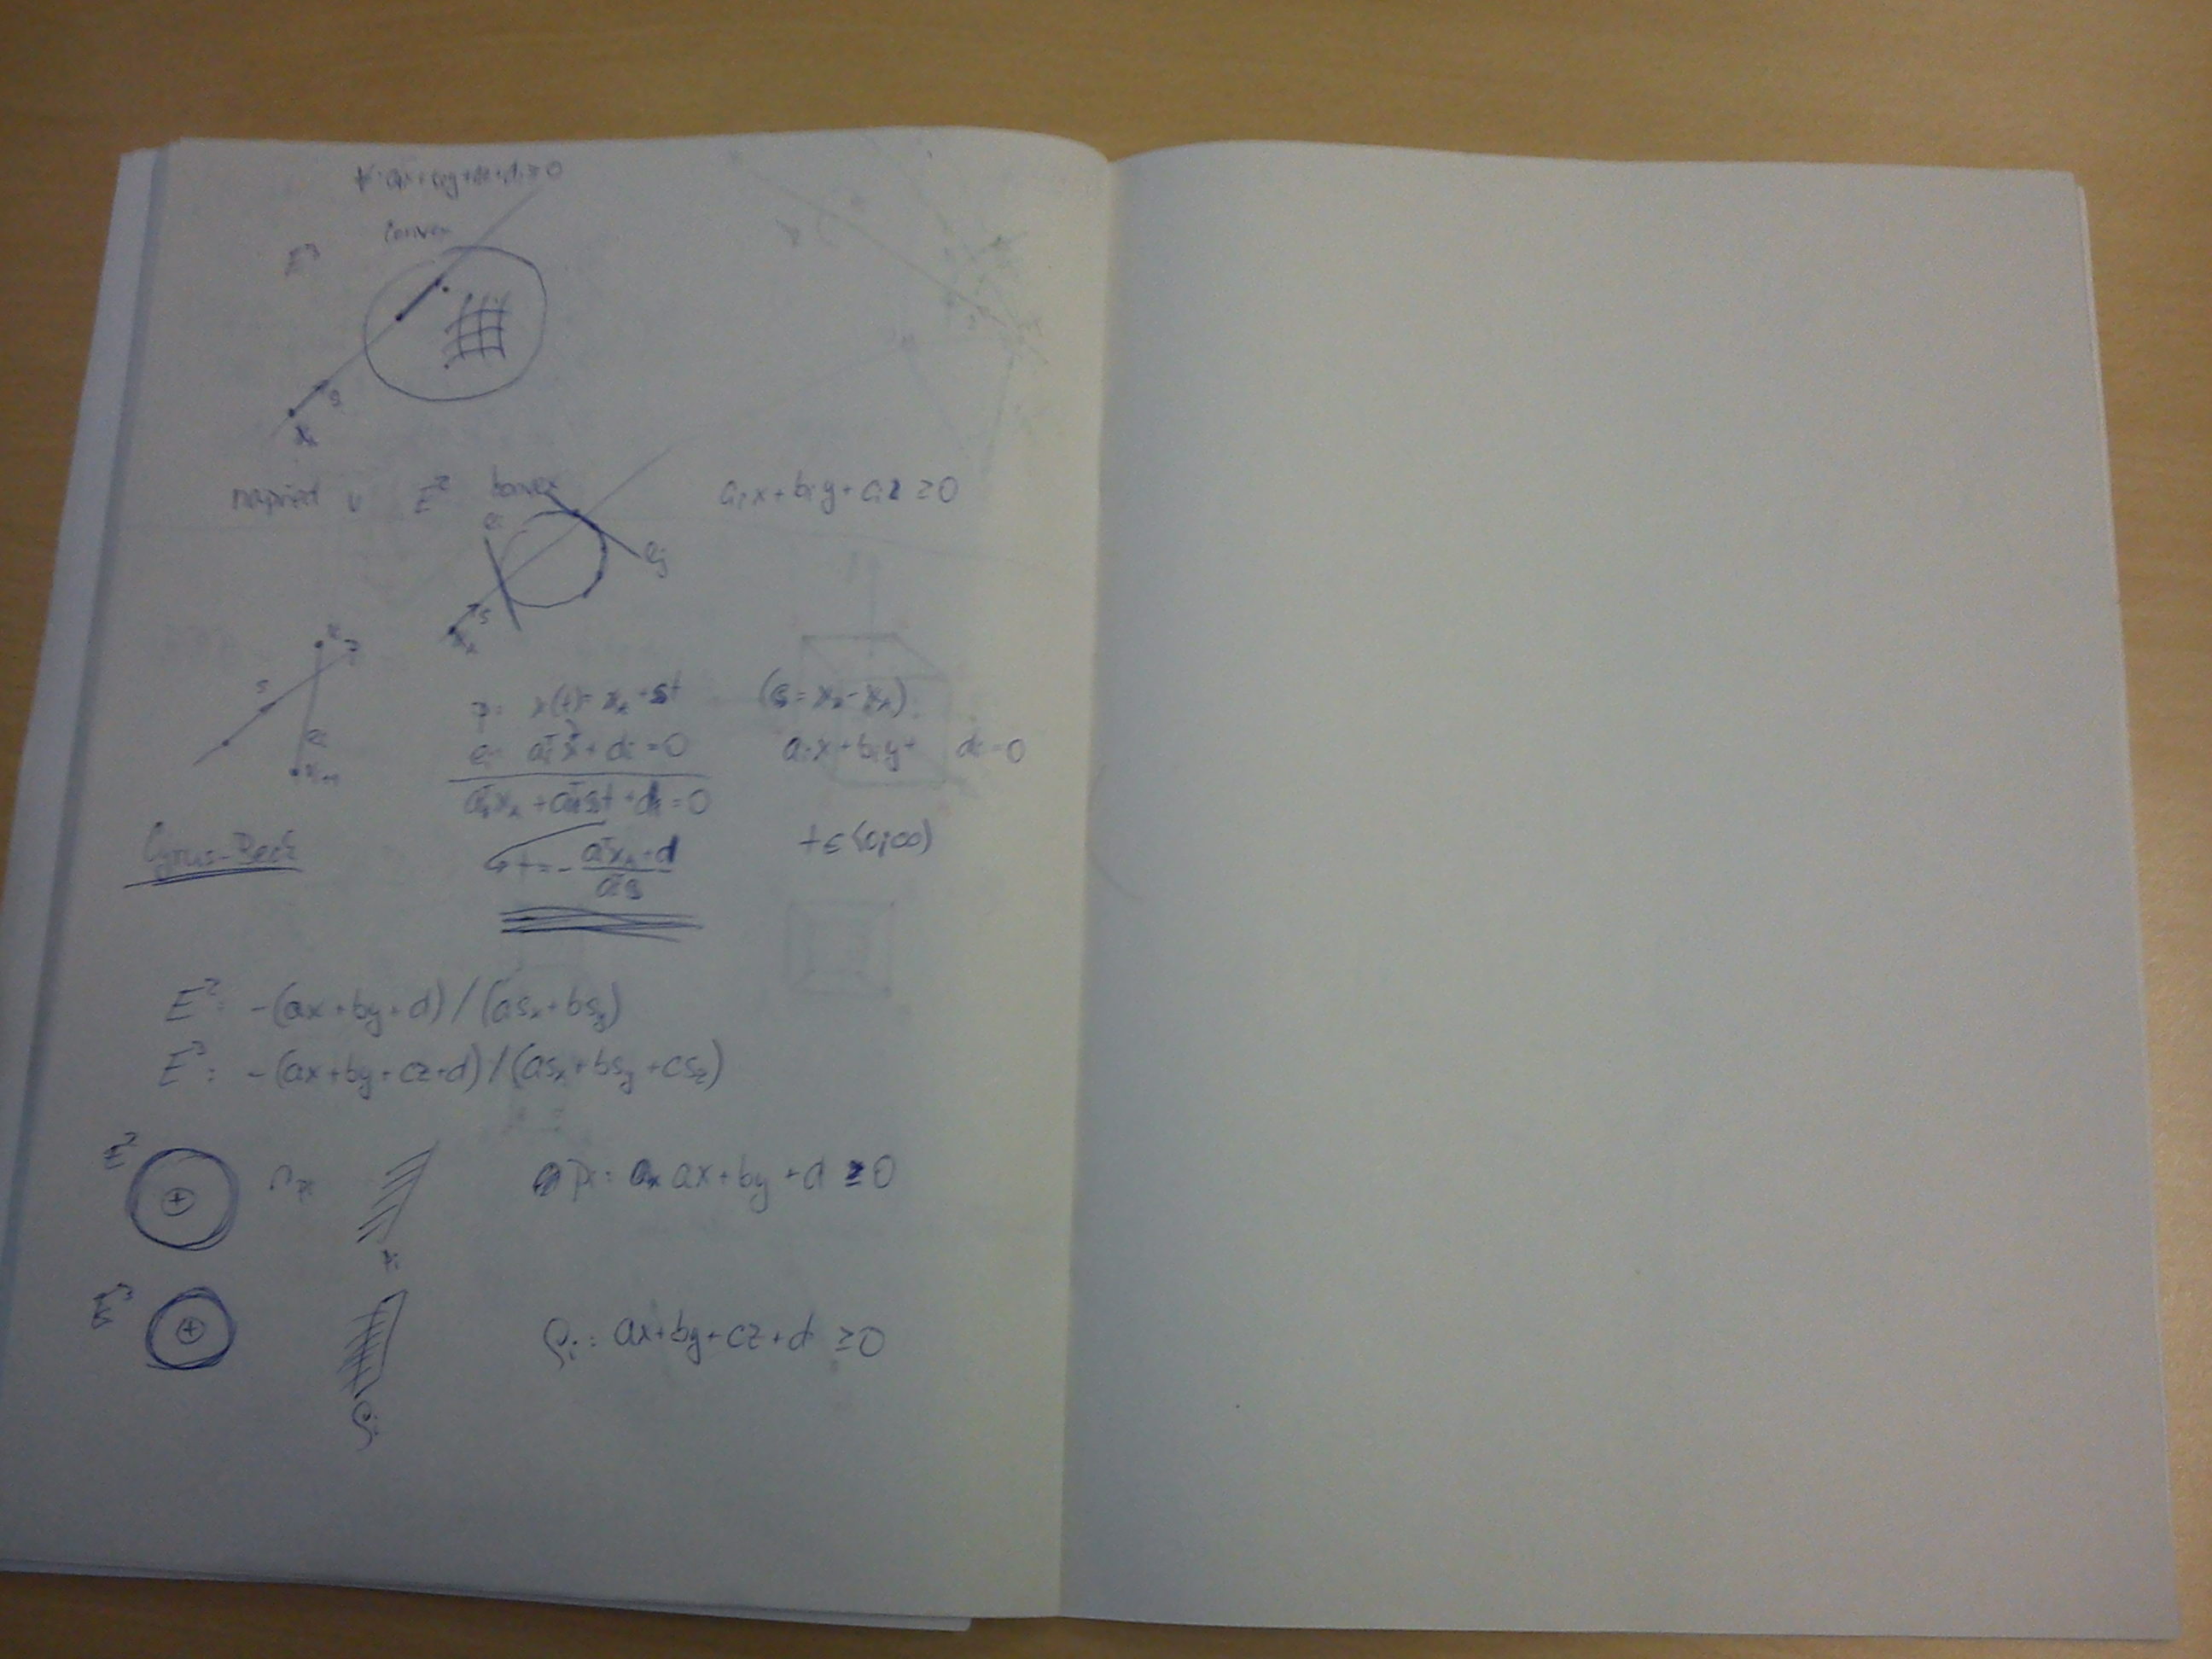 convex
E³
s
x_A
napřed v E² konvex aᵢx+bᵢy+cᵢz ≥0
eᵢ
eⱼ
s
x_A
xᵢ
p
s
eᵢ
xᵢ₊₁
p: x(t)= x_A+st (s=x_B-x_A)
eᵢ: aᵢᵀx+dᵢ=0 aᵢx+bᵢy+ dᵢ=0
aᵢᵀx_A+aᵢᵀst+dᵢ=0
Cyrus-Beck t∈⟨0;∞)
t=-(aᵀx_A+d)/(aᵀs)
E²: -(ax+by+d)/(asₓ+bs_y)
E³: -(ax+by+cz+d)/(asₓ+bs_y+cs_z)
E² + pᵢ: ax+by+d ≥0
pᵢ
E³ + ρᵢ: ax+by+cz+d ≥0
ρᵢ